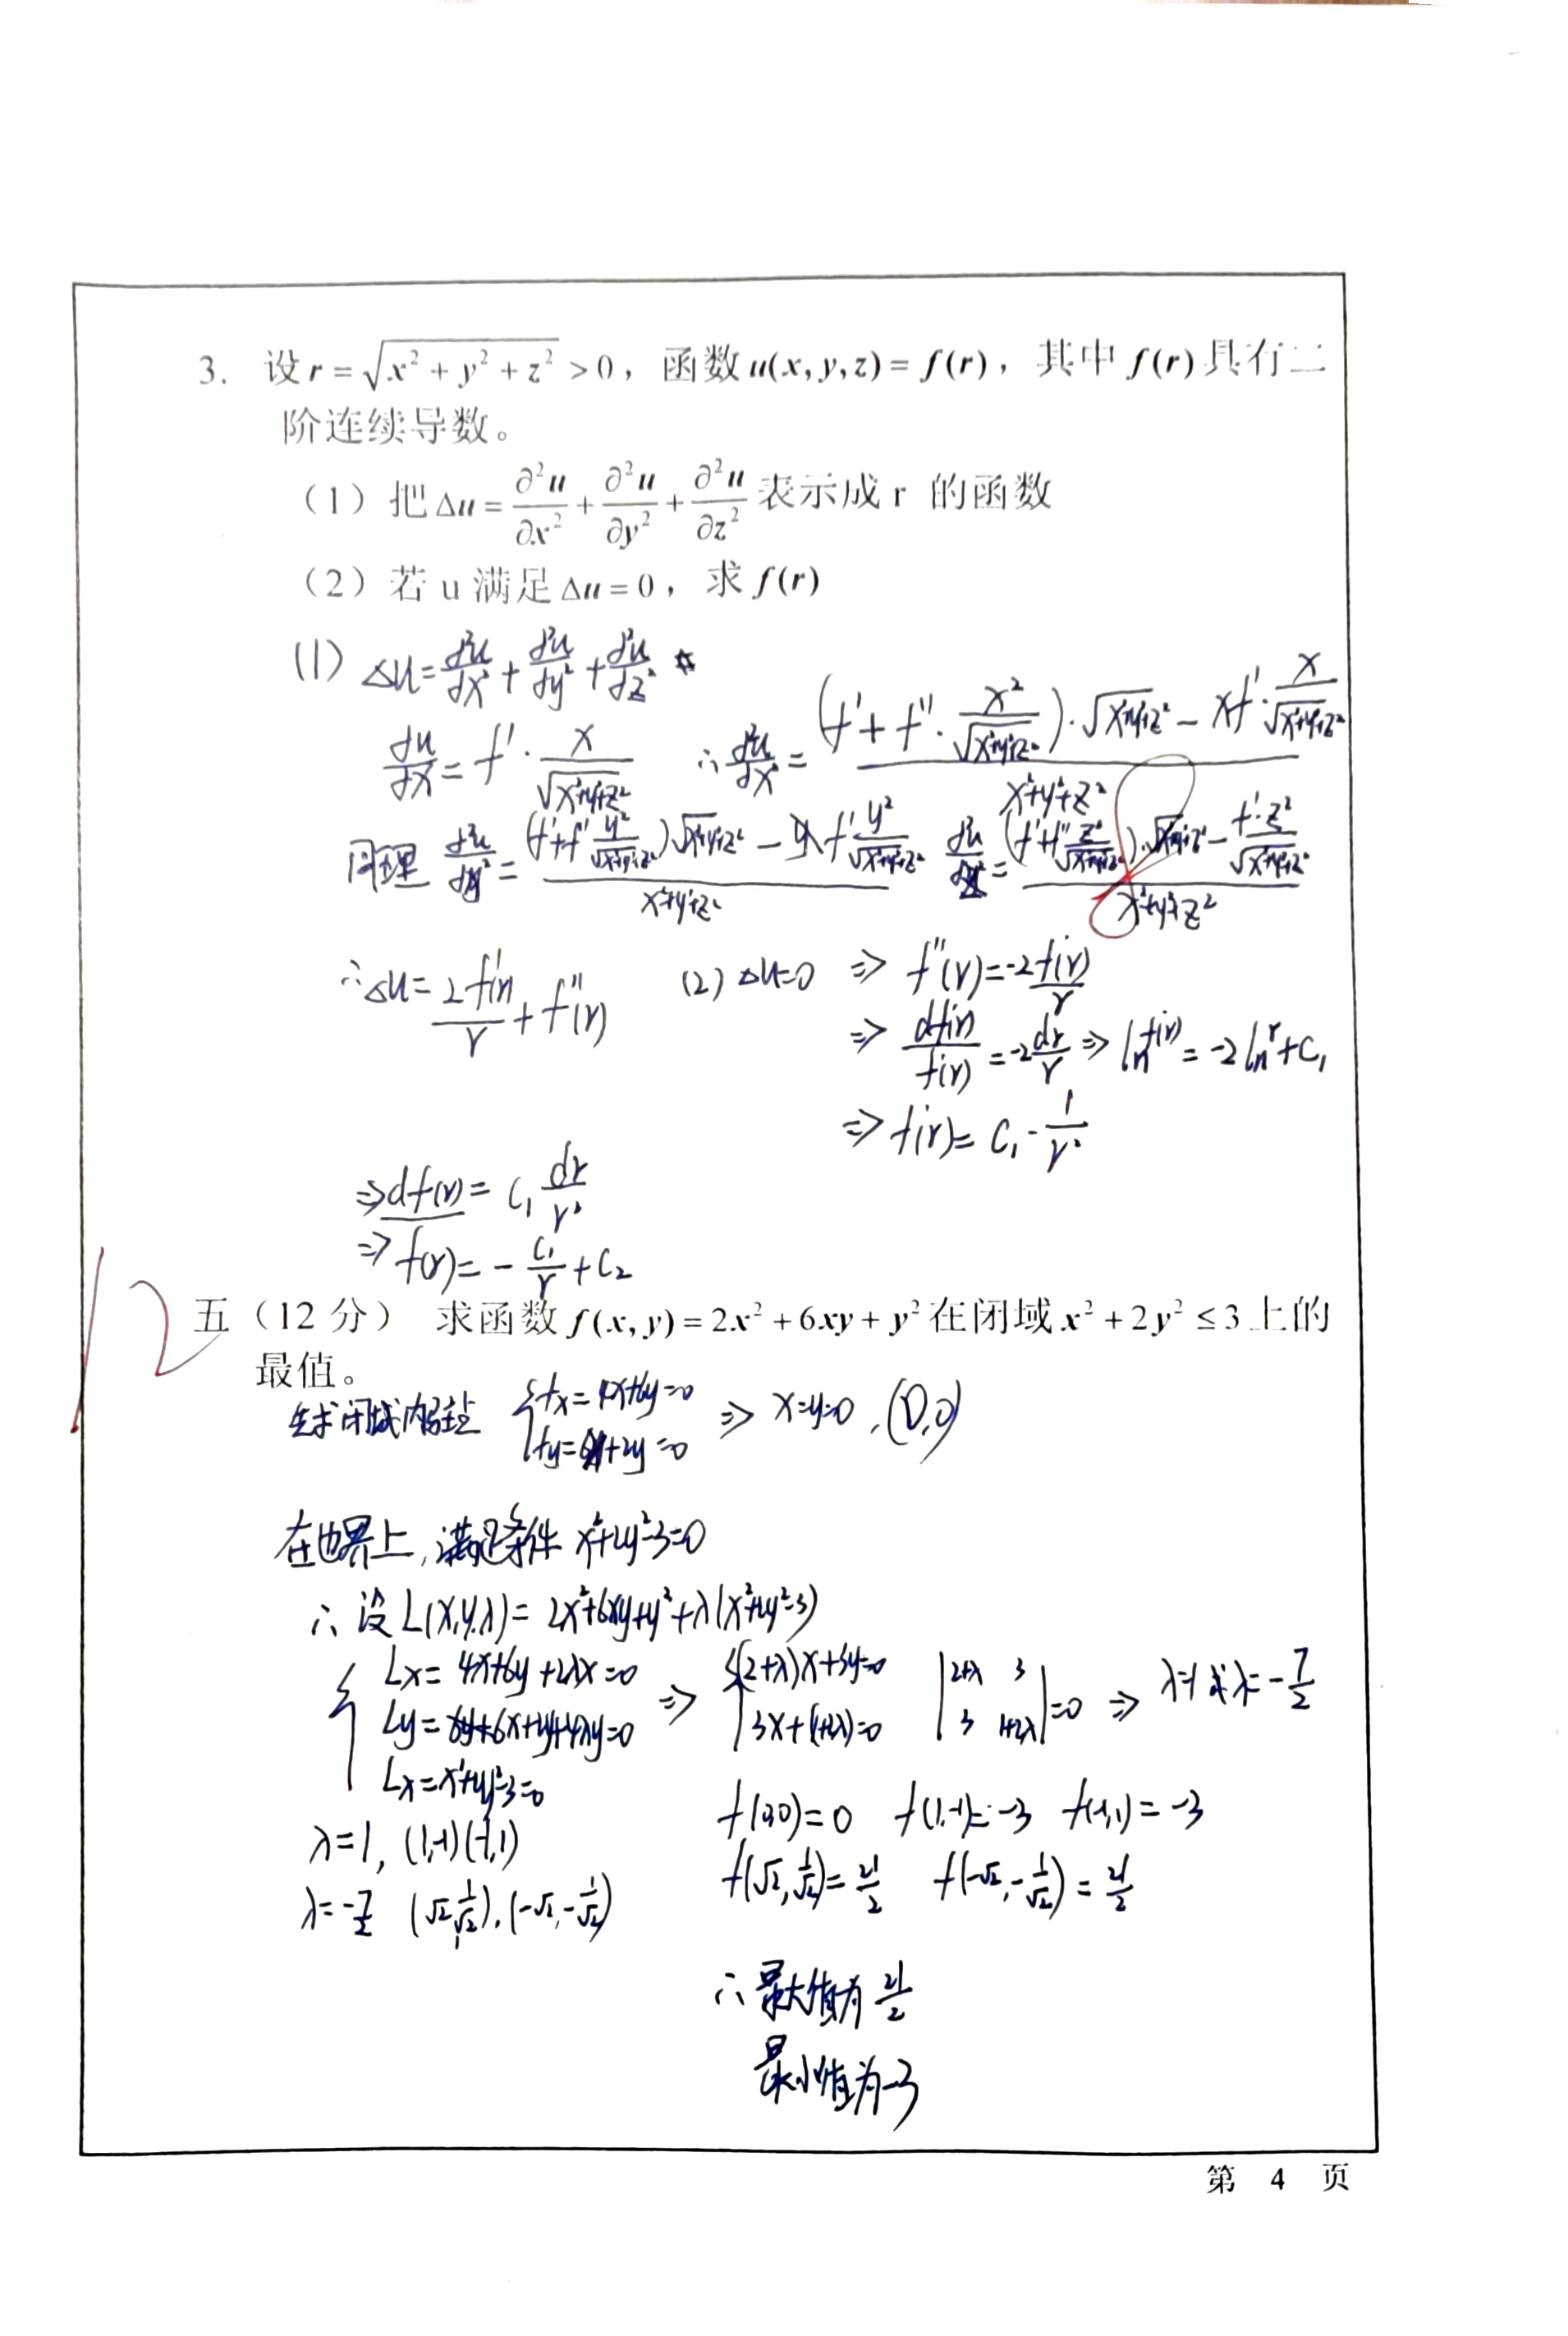 3. 设 r = √(x² + y² + z²) > 0，函数 u(x, y, z) = f(r)，其中 f(r) 具有二
阶连续导数。
（1）把 Δu = ∂²u/∂x² + ∂²u/∂y² + ∂²u/∂z² 表示成 r 的函数
（2）若 u 满足 Δu = 0，求 f(r)
(1) Δu = ∂²u/∂x² + ∂²u/∂y² + ∂²u/∂z²
∂u/∂x = f' · x/√(x²+y²+z²) ∴ ∂²u/∂x² = ((f' + f'' · x²/√(x²+y²+z²)) · √(x²+y²+z²) − xf' · x/√(x²+y²+z²))/(x²+y²+z²)
同理 ∂²u/∂y² = ((f' + f'' y²/√(x²+y²+z²))√(x²+y²+z²) − f' y²/√(x²+y²+z²))/(x²+y²+z²) ∂²u/∂z² = ((f' + f'' z²/√(x²+y²+z²)) · √(x²+y²+z²) − f'·z²/√(x²+y²+z²))/(x²+y²+z²)
∴ Δu = 2f'(r)/r + f''(r) (2) Δu=0 ⇒ f''(r) = −2 f'(r)/r
⇒ df'(r)/f'(r) = −2 dr/r ⇒ ln f'(r) = −2 ln r + C₁
⇒ f'(r) = C₁ · 1/r²
⇒ df(r) = C₁ dr/r²
⇒ f(r) = − C₁/r + C₂
12
五（12 分） 求函数 f(x, y) = 2x² + 6xy + y² 在闭域 x² + 2y² ≤ 3 上的
最值。
先求闭域内驻点 { fx = 4x+6y=0 fy = 6x+2y=0 ⇒ x=y=0, (0,0)
在边界上, 满足条件 x²+2y²−3=0
∴ 设 L(x,y,λ) = 2x²+6xy+y²+λ(x²+2y²−3)
{ Lx = 4x+6y+2λx=0 ⇒ { (2+λ)x+3y=0 |2+λ 3| =0 ⇒ λ=1 或 λ=−7/2
Ly = 6x+2y+4λy=0 3x+(1+2λ)=0 |3 1+2λ|
Lλ = x²+2y²−3=0
λ=1, (1,−1)(−1,1) f(0,0)=0 f(1,−1)=−3 f(−1,1)=−3
λ=−7/2 (√2, 1/√2), (−√2, −1/√2) f(√2, 1/√2) = 21/2 f(−√2, −1/√2) = 21/2
∴ 最大值为 21/2
最小值为−3
第 4 页